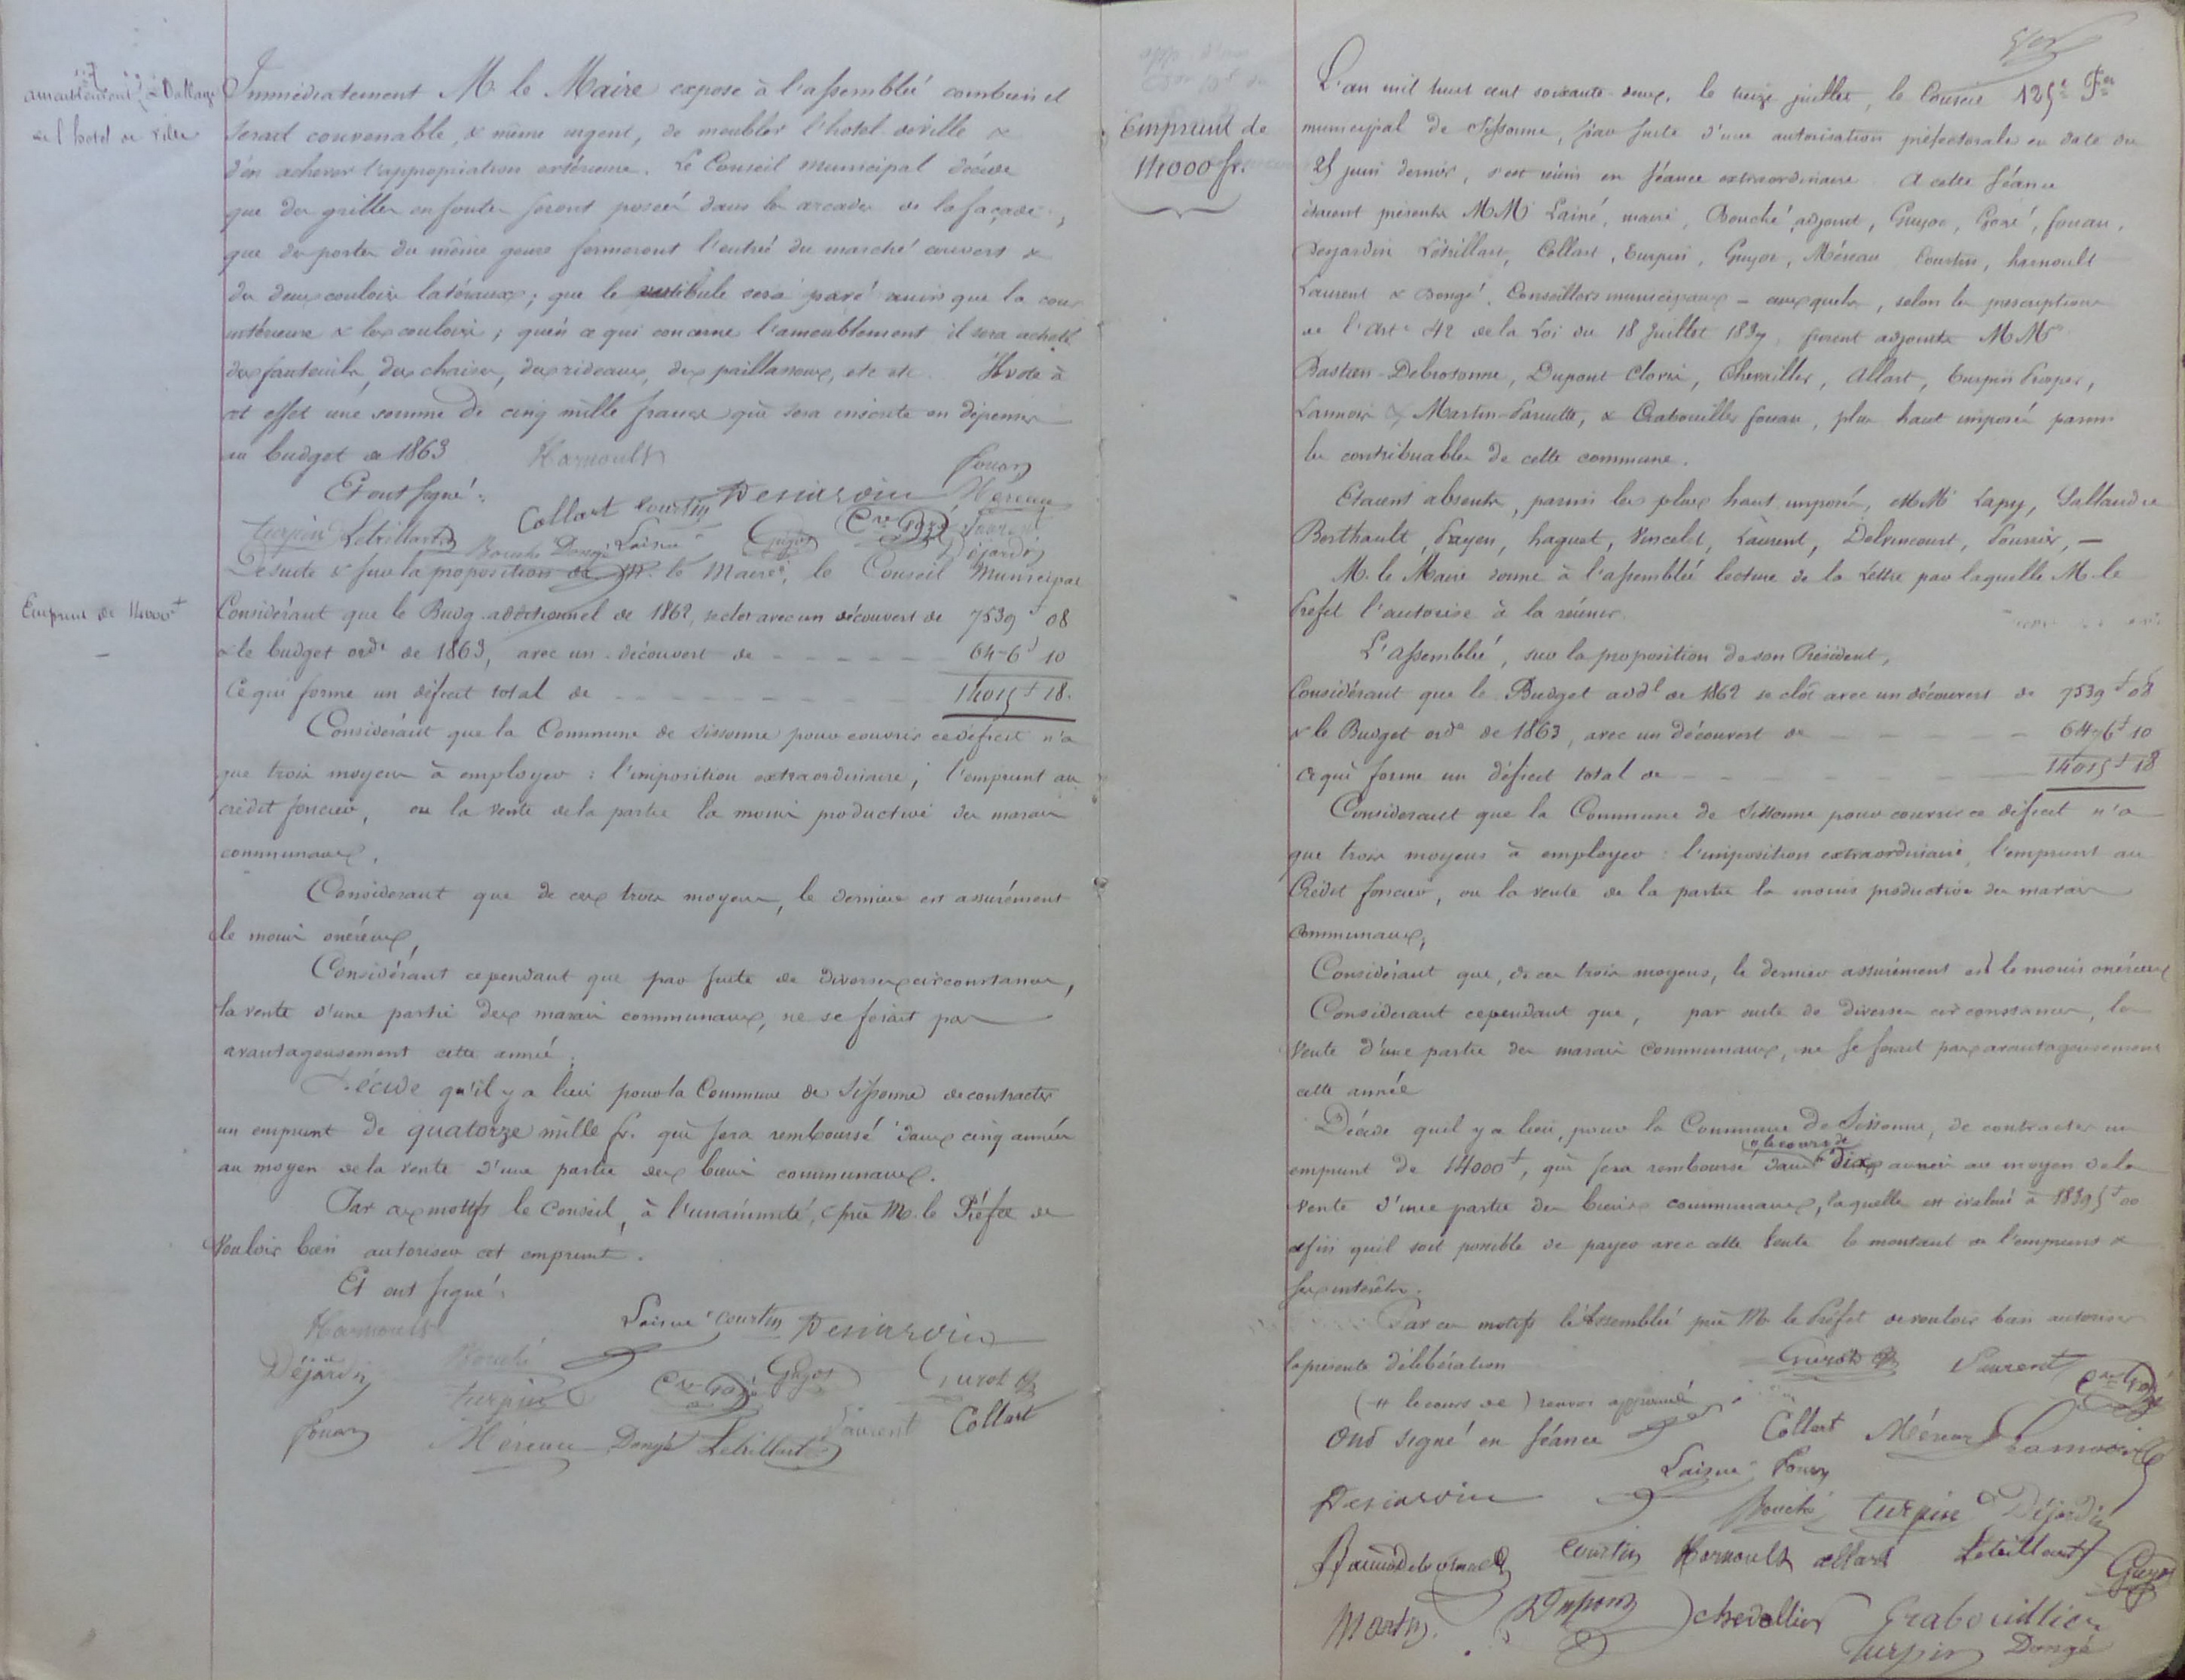 ameublement & Dallage
de l'hotel de Ville
Immédiatement M. le Maire expose à l'assemblée combien il
serait convenable, & même urgent, de meubler l'hotel de ville &
d'en achever l'appropriation extérieure. Le Conseil municipal décide
que des grilles en fonte seront posées dans les arcades de la façade,
que des portes du même genre fermeront l'entrée du marché couvert &
des deux couloirs latéraux; que le vestibule sera pavé ainsi que la cour
intérieure & les couloirs; qu'en ce qui concerne l'ameublement il sera acheté
des fauteuils, des chaises, des rideaux, des paillassons, etc etc. Il vote à
cet effet une somme de cinq mille francs qui sera inscrite en dépenses
au budget de 1863
Harnoult
Fouan
Et ont signé:
Collart Courtin Desjardin Méreau
Turpin Létrillart Bouché Dongé Laisné Guyot Laurent
Déjardin
De suite & sur la proposition de M. le Maire, le Conseil Municipal
Emprunt de 14000f
Considérant que le Budg. additionnel de 1862, se clot avec un découvert de 7539f 08
& le budget ordre de 1863, avec un découvert de 6476f 10
Ce qui forme un déficit total de 14015f 18.
Considérant que la Commune de Sissonne pour couvrir ce déficit n'a
que trois moyens à employer: l'imposition extraordinaire; l'emprunt au
crédit foncier, ou la vente de la partie la moins productive des marais
communaux.
Considérant que de ces trois moyens, le dernier est assurément
le moins onéreux,
Considérant cependant que par suite de diverses circonstances,
la vente d'une partie des marais communaux, ne se ferait pas
avantageusement cette année;
Décide qu'il y a lieu pour la Commune de Sissonne de contracter
un emprunt de quatorze mille fr. qui sera remboursé dans cinq années
au moyen de la vente d'une partie des biens communaux.
Par ces motifs le Conseil, à l'unanimité, prie M. le Préfet de
vouloir bien autoriser cet emprunt.
Et ont signé:
Harnoult Laisné Courtin Desjardin
Déjardin Bouché Turpin Guyot Gurot
Fouan Méreau Dongé Létrillart Laurent Collart
125e Fer
Emprunt de
14000 fr.
L'an mil huit cent soixante-deux, le treize juillet, le Conseil
municipal de Sissonne, par suite d'une autorisation préfectorale en date du
25 juin dernier, s'est réuni en séance extraordinaire. A cette séance
étaient présents MM Lainé, maire, Bouché adjoint, Guyot, Goré, fouan,
Desjardin Létrillart, Collart, turpin, Guyot, Méreau Courtin, harnoult
Laurent & Dongé. Conseillers municipaux – auxquels, selon les prescriptions
de l'Arte 42 de la Loi du 18 Juillet 1837, furent adjoints MM
Bastien-Debrosonne, Dupont Clovis, Chevallier, Allart, turpin Prosper,
Lannois & Martin-Paruitte, & Grabouillet fouan, plus haut imposés parmi
les contribuables de cette commune.
Etaient absents, parmi les plus haut imposés, MM Lapy, Sallandre
Berthault, Payen, haquet, Vincelet, Laurent, Delvincourt, Fournier, —
M. le Maire donne à l'assemblée lecture de la Lettre par laquelle M. le
Préfet l'autorise à la réunir.
L'assemblée, sur la proposition de son Président,
Considérant que le Budget addl de 1862 se clôt avec un découvert de 7539f 08
& le Budget ordre de 1863, avec un découvert de 6476f 10
ce qui forme un déficit total de 14015f 18
Considérant que la Commune de Sissonne pour couvrir ce déficit n'a
que trois moyens à employer: l'imposition extraordinaire, l'emprunt au
Crédit foncier, ou la vente de la partie la moins productive des marais
communaux;
Considérant que, de ces trois moyens, le dernier assurément est le moins onéreux
Considérant cependant que, par suite de diverses circonstances, la
vente d'une partie des marais communaux, ne se ferait pas avantageusement
cette année
Décide qu'il y a lieu, pour la Commune de Sissonne, de contracter un
# le cours de
emprunt de 14000f, qui sera remboursé dans # dix années au moyen de la
vente d'une partie des biens communaux, laquelle est évaluée à 18395f 00
afin qu'il soit possible de payer avec cette vente le montant de l'emprunt &
ses intérêts.
Par ces motifs l'Assemblée prie M. le Préfet de vouloir bien autoriser
la présente délibération
Gurot Laurent
(# le cours de) renvoi approuvé
Ont signé en séance
Collart Méreau Lannois
Laisné Fouan
Desjardin Bouché turpin Déjardin
Courtin Harnoult allart Létrillart Guyot
Martin Dupont chevallier Grabouillet
Turpin Dongé